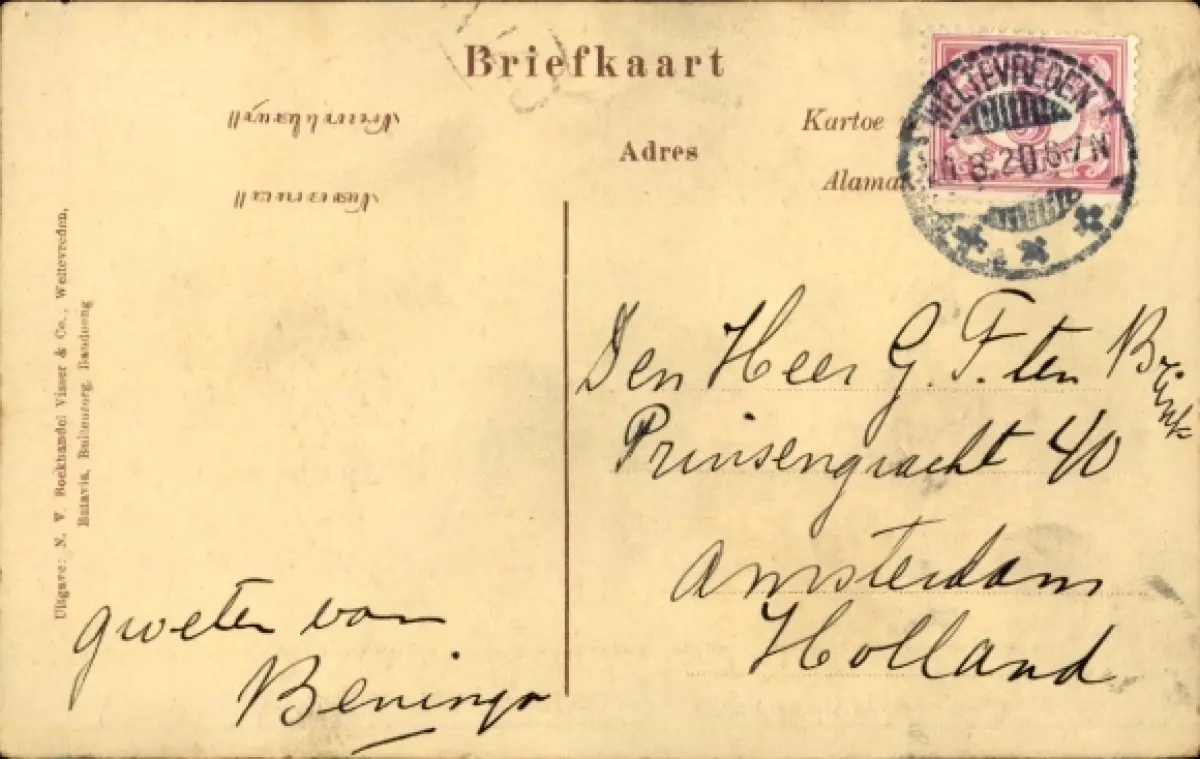 Briefkaart
Adres
Kartoe
Alamat
WELTEVREDEN
8.20.6-7N
Uitgave: N. V. Boekhandel Visser & Co., Weltevreden,
Batavia, Buitenzorg, Bandoeng
Den Heer G. F. ten Brink
Prinsengracht 40
Amsterdam
Holland
groeten van
Beninga